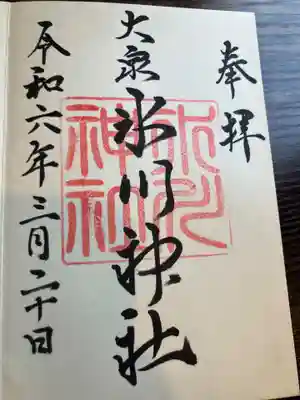 奉拝
大泉
氷川神社
氷川神社
令和六年三月二十日